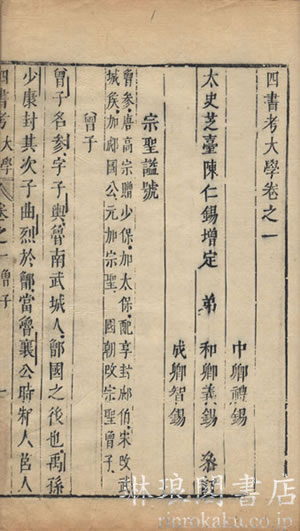 四書考大學卷之一
中卿禮錫
太史芝臺陳仁錫增定 弟 和卿義錫
成卿智錫
宗聖謚號
曾參唐高宗贈少保加太保配享封郕伯宋改武
城侯加郕國公元加宗聖 國朝改宗聖曾子
曾子
曾子名參字子輿魯南武城人鄫國之後也禹孫
少康封其次子曲烈於鄫當魯襄公時邾人莒人
四書考 大學 卷之一 曾子 一
琳琅閣書店
rinrokaku.co.jp